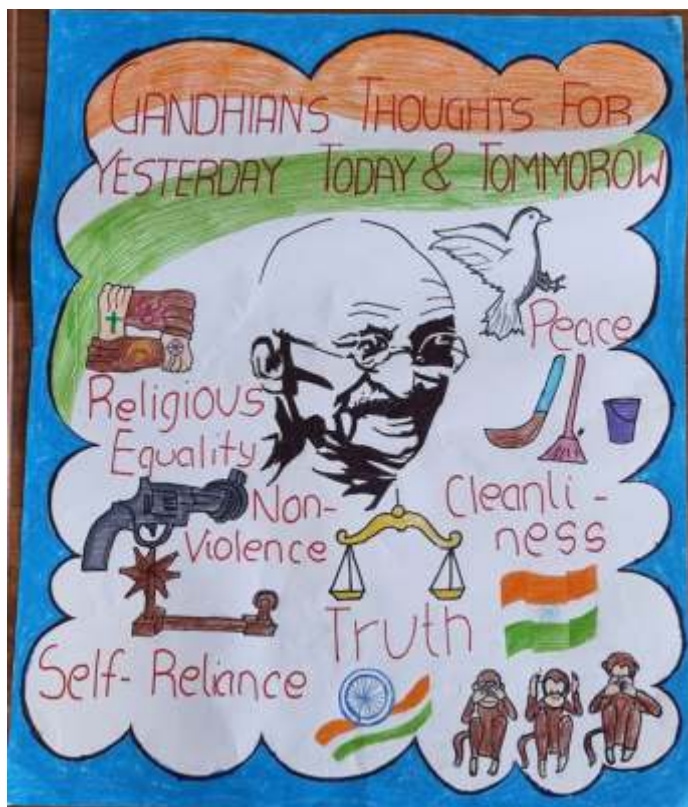 GANDHIANS THOUGHTS FOR
YESTERDAY TODAY & TOMMOROW
Peace
Religious
Equality
Non-
Violence
Cleanli-
ness
Truth
Self-Reliance